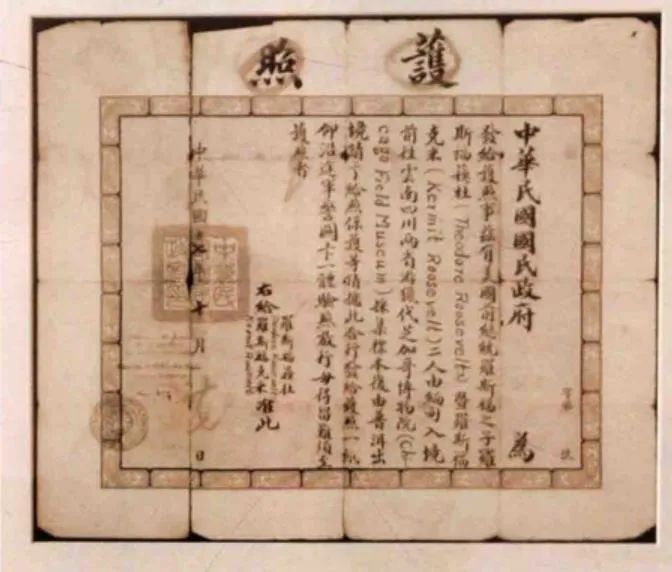 護照
字第 號
中華民國國民政府 為
發給護照事茲有美國前總統羅斯福之子羅
斯福 杜(Theodore Roosevelt)暨羅斯福
克米(Kermit Roosevelt)二人由緬甸入境
前往雲南四川兩省游獵代芝加哥博物院(Chi
cago Field Museum)採集標本復由普洱出
境請予給照保護等情據此合行發給護照一紙
仰沿途軍警關卡一體驗照放行毋得留難須至
護照者
右給
羅斯福 杜
羅斯福克米
准此
中華民國 年十月 日